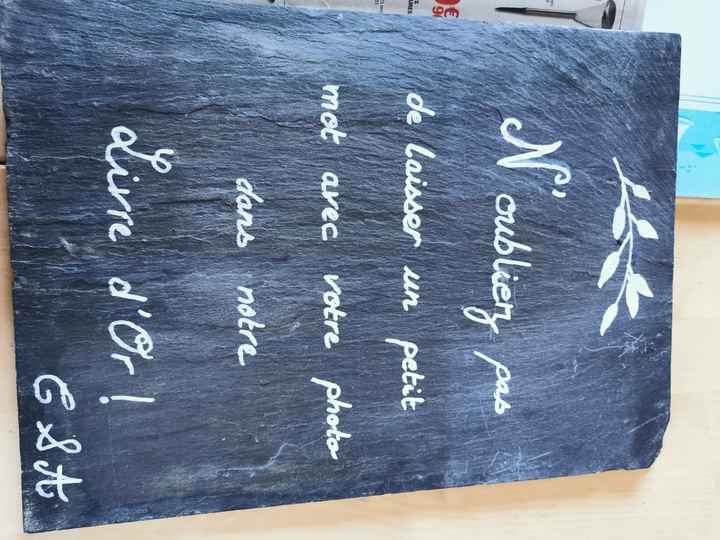 N'oubliez pas
de laisser un petit
mot avec votre photo
dans notre
Livre d'Or !
C & A